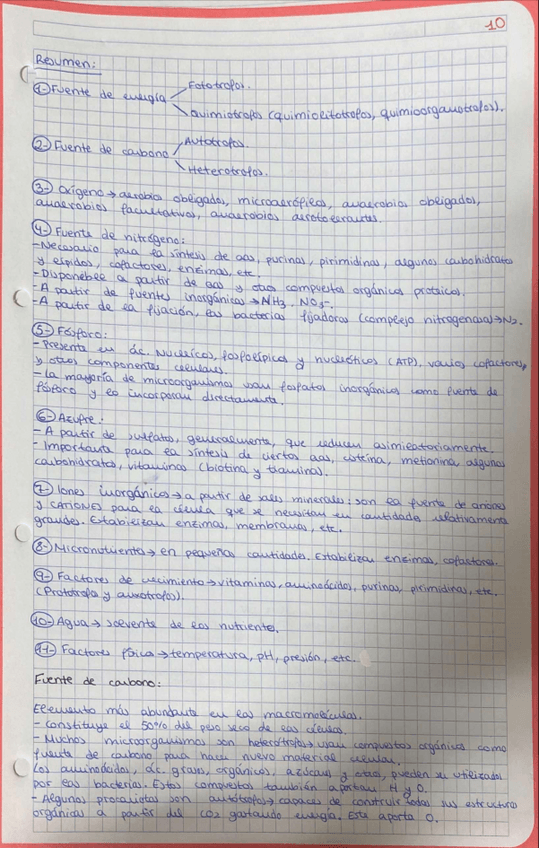 10
Resumen:
1- Fuente de energía
Fototrofos.
Quimiotrofos (quimiolitotrofos, quimioorganotrofos).
2- Fuente de carbono
Autótrofos.
Heterótrofos.
3- Oxígeno → aerobios obligados, microaerófilos, anaerobios obligados,
anaerobios facultativos, anaerobios aerotolerantes.
4- Fuente de nitrógeno:
- Necesario para la síntesis de aas, purinas, pirimidinas, algunos carbohidratos
y lípidos, cofactores, enzimas, etc.
- Disponible a partir de aas y otros compuestos orgánicos proteicos.
- A partir de fuentes inorgánicas → NH3, NO3-.
- A partir de la fijación, las bacterias fijadoras (complejo nitrogenasa) → N2.
5- Fósforo:
- Presente en ác. Nucleicos, fosfolípidos y nucleótidos (ATP), varios cofactores,
y otros componentes celulares.
- La mayoría de microorganismos usan fosfatos inorgánicos como fuente de
fósforo y lo incorporan directamente.
6- Azufre:
- A partir de sulfatos, generalmente, que reducen asimilatoriamente.
- Importante para la síntesis de ciertos aas, cisteína, metionina, algunos
carbohidratos, vitaminas (biotina y tiamina).
7- Iones inorgánicos → a partir de sales minerales: son la fuente de aniones
y CATIONES para la célula que se necesitan en cantidades relativamente
grandes. Estabilizan enzimas, membranas, etc.
8- Micronutrientes → en pequeñas cantidades. Estabilizan enzimas, cofactores.
9- Factores de crecimiento → vitaminas, aminoácidos, purinas, pirimidinas, etc.
(Protótrofa y auxótrofos).
10- Agua → solvente de los nutrientes.
11- Factores físicos → temperatura, pH, presión, etc.
Fuente de carbono:
Elemento más abundante en las macromoléculas.
- Constituye el 50% del peso seco de las células.
- Muchos microorganismos son heterótrofos → usan compuestos orgánicos como
fuente de carbono para hacer nuevo material celular.
Los aminoácidos, ác. grasos, orgánicos, azúcares y otros, pueden ser utilizados
por las bacterias. Estos compuestos también aportan H y O.
- Algunos procariotas son autótrofos → capaces de construir todas sus estructuras
orgánicas a partir del CO2 gastando energía. Esta aporta O.